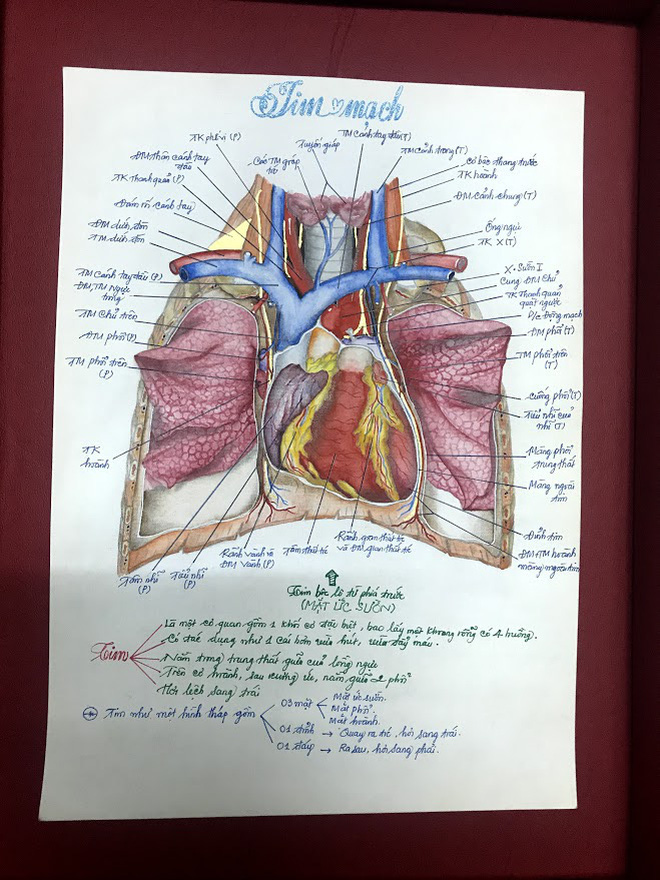 Tim mạch
TK phế vị (P)
Tuyến giáp
TM cảnh tay đầu (T)
ĐM thân cánh tay
đầu
Các TM giáp
TM cảnh trong (T)
cơ bậc thang trước
TK Thanh quản (P)
TK hoành
Đám rối cánh tay
ĐM cảnh chung (T)
ĐM dưới đòn
TM dưới đòn
Ống ngực
TK X (T)
TM cánh tay đầu (P)
ĐM, TM Ngực
trong
X. Sườn I
Cung ĐM Chủ
TK Thanh quản
quặt ngược
TM Chủ trên
D/c Động mạch
ĐM phổi (P)
ĐM phổi (T)
TM phổi trên
(P)
TM phổi trên
(T)
cuống phổi (T)
Tiểu nhĩ của
nhĩ (T)
TK
hoành
Màng phổi
trung thất
Màng ngoài
tim
Đỉnh tim
ĐM+TM hoành
màng ngoài tim
Tâm nhĩ
(P)
Tiểu nhĩ
(P)
Rãnh vành và
ĐM Vành (P)
Tâm thất
Rãnh gian thất
và ĐM gian thất
Tim bộc lộ từ phía trước
(MẶT ỨC SƯỜN)
Tim
Là một cơ quan gồm 1 khối cơ đặc biệt, bao lấy một khoang rỗng có 4 buồng.
Có tác dụng như 1 cái bơm vừa hút, vừa đẩy máu.
Nằm trong trung thất giữa của lồng ngực
Trên cơ hoành, sau xương ức, nằm giữa 2 phổi
Hơi lệch sang trái
Tim như một hình tháp gồm
03 mặt
Mặt ức sườn.
Mặt phổi.
Mặt hoành.
01 đỉnh → Quay ra trc, hơi sang trái.
01 đáy → Ra sau, hơi sang phải.